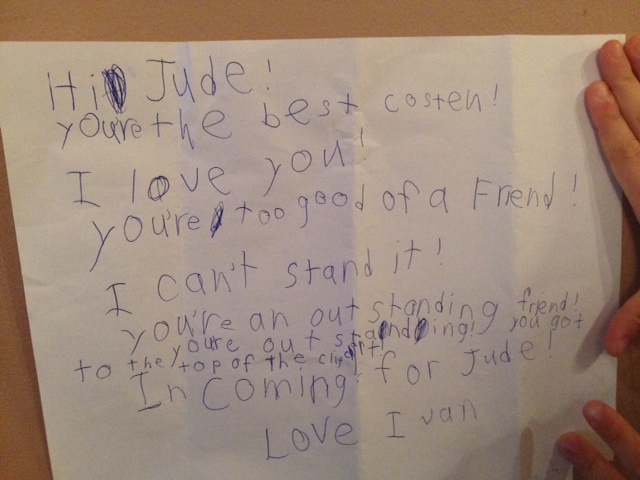 Hi Jude!
you're the best costen!
I love you!
you're too good of a Friend!
I can't stand it!
you're an out standing friend!
you're out standing! you got
to the top of the
In coming! for Jude!
Love Ivan